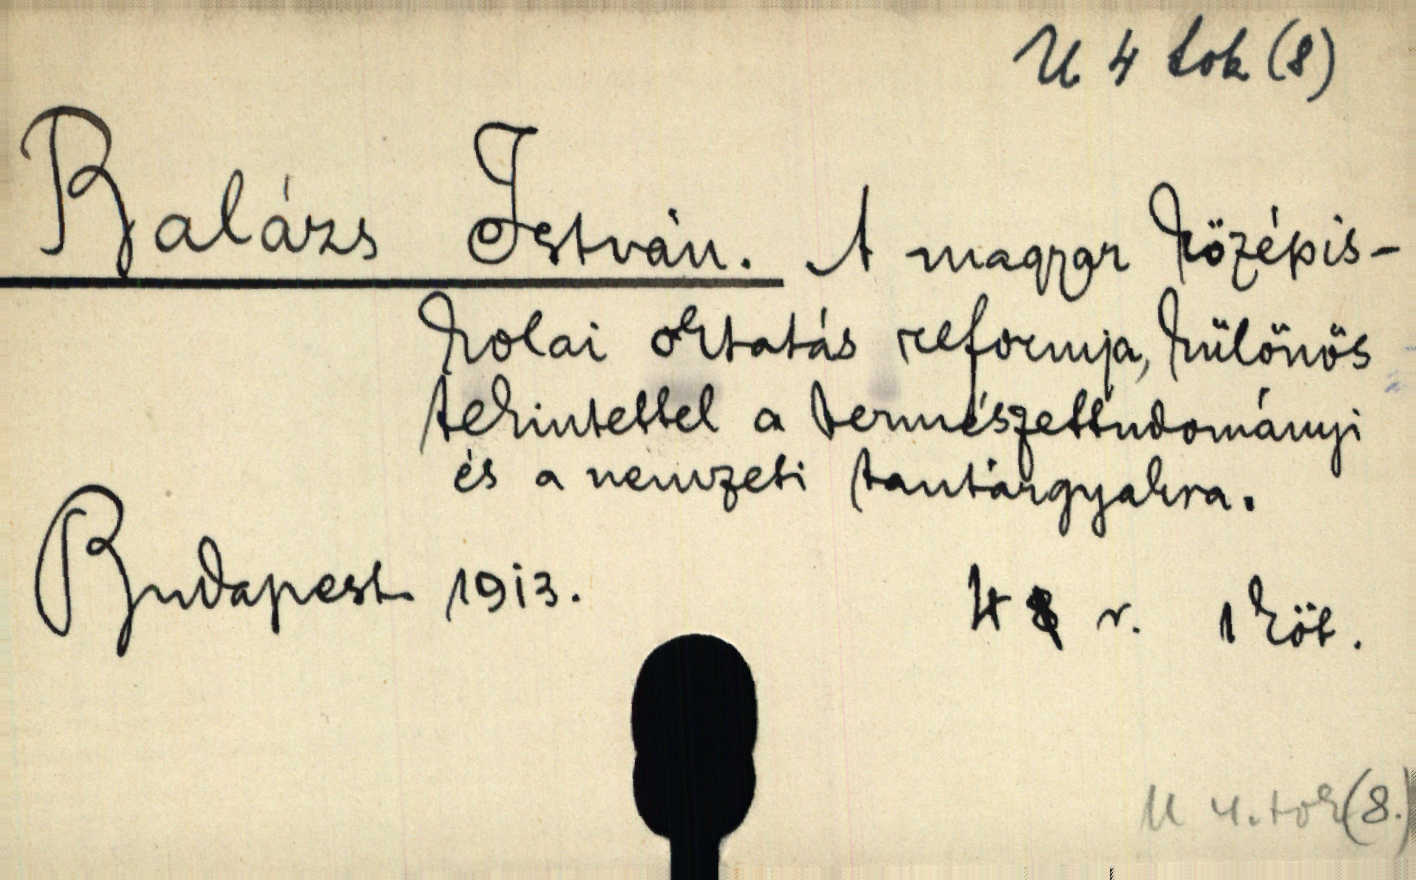 U 4 tok (8)
Balázs István. A magyar középis-
kolai oktatás reformja, különös
tekintettel a természettudományi
és a nemzeti tantárgyakra.
Budapest 1913. 4 8 r. 1 köt.
U 4. tok (8.)